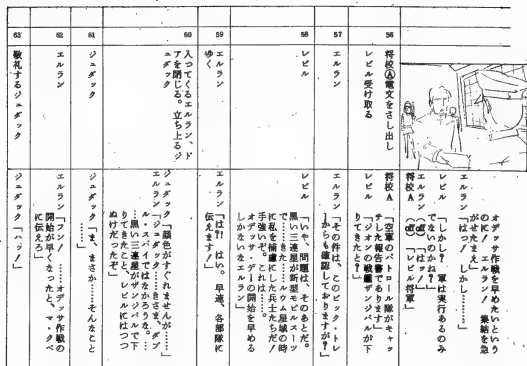 オデッサ作戦を早めたいという
のに! エルラン! 集結を急
がせたまえ」
エルラン「はっ、しかし………」
レビル「しかし? 軍は実行あるのみ
でないのかね?」
エルラン
将校A「レビル将軍」
56
将校Ⓐ電文をさし出し
将校A「空軍のパトロール隊がキャッ
チした報告書であります」
レビル受け取る
レビル「ジオンの戦艦ザンジバルが下
りてきたと?」
57
エルラン
エルラン「その件は、このビック・トレ
ーからも確認しておりますが?」
58
レビル
レビル「いや、問題は、そのあとだ。
黒い三連星が新型モビルスーツ
で……きゃつらはルウム星域の時
に私を捕虜にした兵士たちだ!
手強いぞ。これは……
オデッサ・デーの開始を早める
しかないなエルラン」
59
エルラン
エルラン「は?! はい。早速、各部隊に
伝えます!」
ゆく
60
入ってくるエルラン、ド
アを閉じる。立ち上るジ
ュダック
ジュダック「顔色がすぐれませんが……」
エルラン「ジュダック……きさま、ダブ
ル・スパイではなかろうな。…
…黒い三連星がザンジバルで下
りてきたこと、レビルにはつつ
ぬけだったぞ」
61
ジュダック
ジュダック「ま、まさか……そんなこと
62
エルラン
エルラン「フン!………オデッサ作戦の
開始が早くなったと、マ・クベ
に伝えろ」
63
敬礼するジュダック
ジュダック「ハッ!」